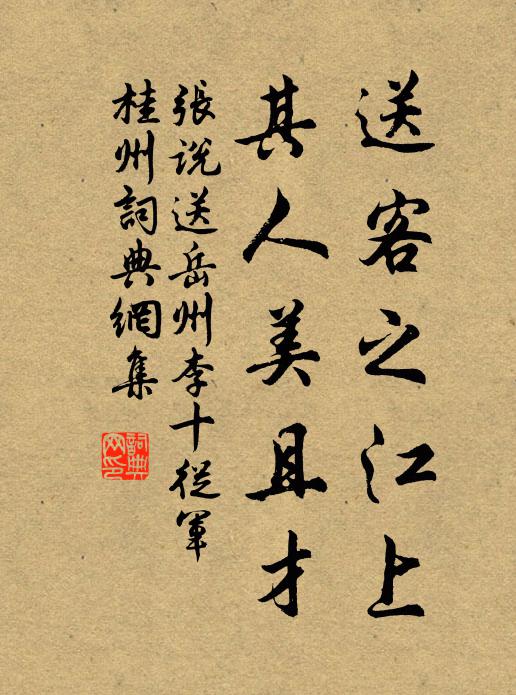 送客之江上
其人美且才
張說送岳州李十從軍
桂州詞典網集
詞典网印